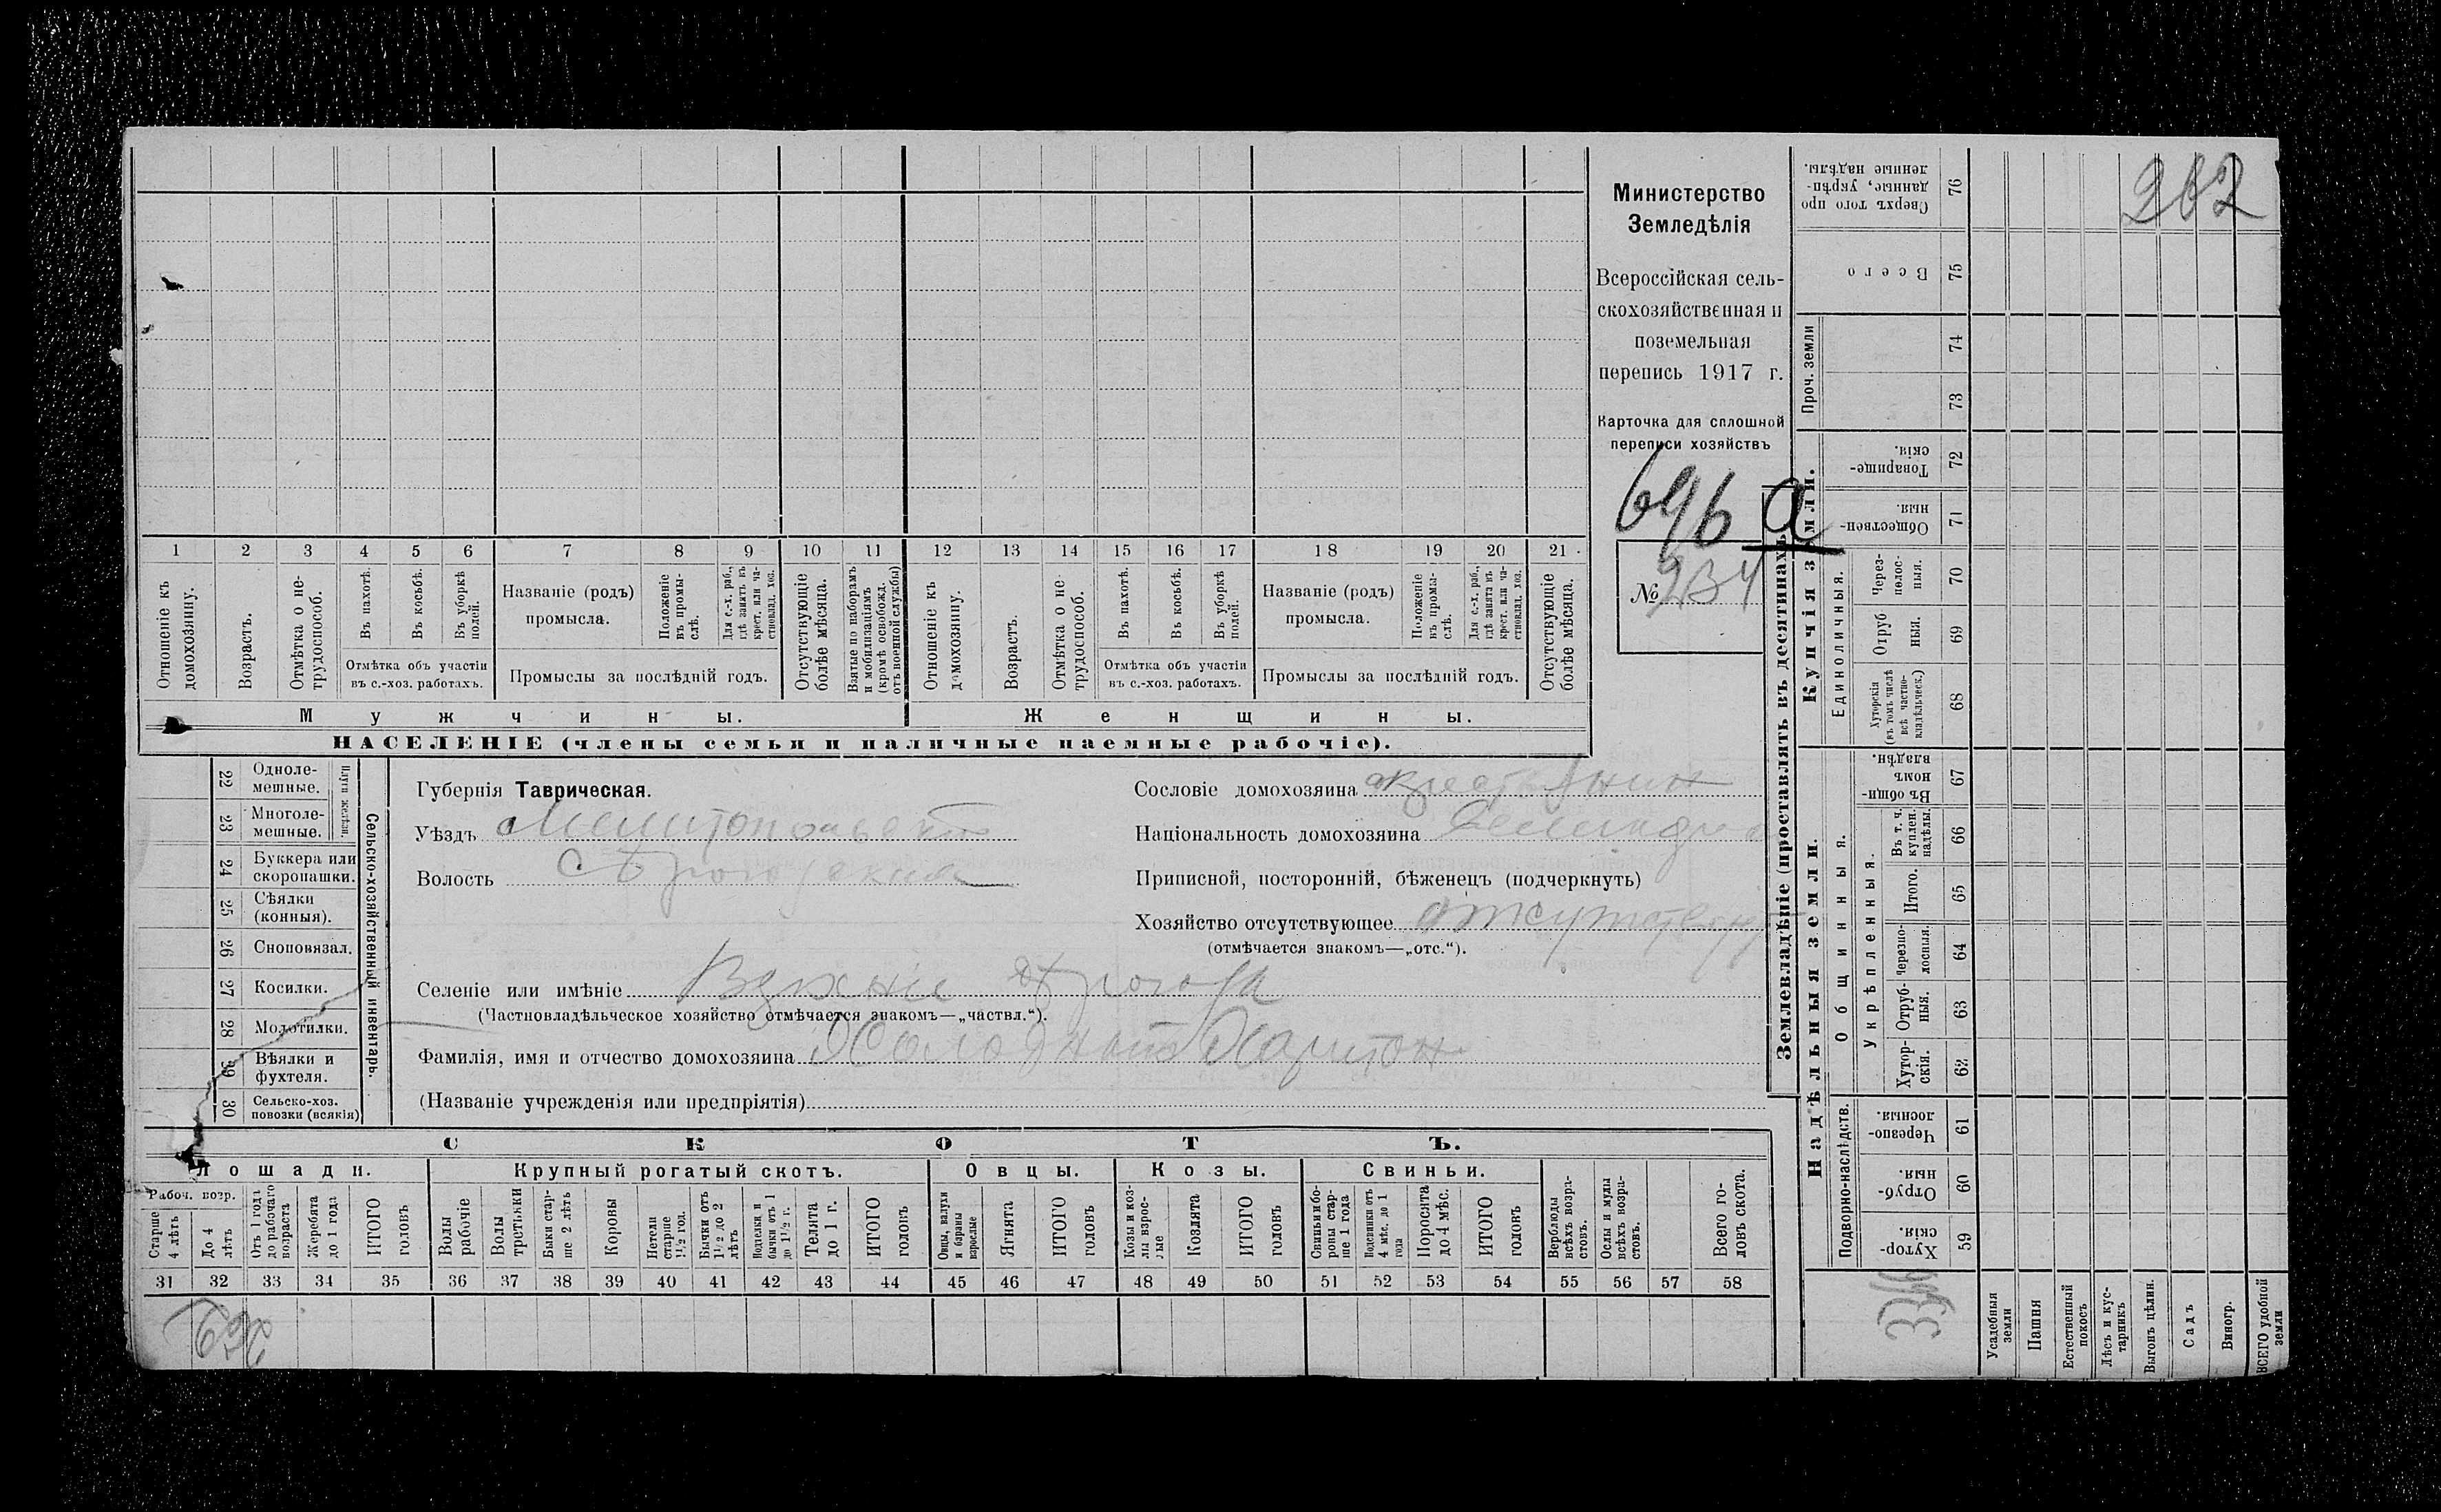 202
Министерство
Земледѣлія
Всероссійская сель-
скохозяйственная и
поземельная
перепись 1917 г.
Карточка для сплошной
переписи хозяйствъ
696 а
№ 234
1 2 3 4 5 6 7 8 9 10 11 12 13 14 15 16 17 18 19 20 21
Отношеніе къ домохозяину.
Возрастъ.
Отмѣтка о не-трудоспособ.
Въ пахотѣ.
Въ косьбѣ.
Въ уборкѣ полей.
Отмѣтка объ участіи
въ с.-хоз. работахъ.
Названіе (родъ)
промысла.
Положеніе въ промы-слѣ.
Для с.-х. раб., гдѣ занятъ въ крест. или ча-стновлад. хоз.
Промыслы за послѣдній годъ.
Отсутствующіе болѣе мѣсяца.
Взятые по наборамъ и мобилизаціямъ (кромѣ освобожд. отъ военной службы)
Отношеніе къ домохозяину.
Возрастъ.
Отмѣтка о не-трудоспособ.
Въ пахотѣ.
Въ косьбѣ.
Въ уборкѣ полей.
Отмѣтка объ участіи
въ с.-хоз. работахъ.
Названіе (родъ)
промысла.
Положеніе въ промы-слѣ.
Для с.-х. раб., гдѣ занята въ крест. или ча-стновлад. хоз.
Промыслы за послѣдній годъ.
Отсутствующіе болѣе мѣсяца.
Мужчины.
Женщины.
НАСЕЛЕНІЕ (члены семьи и наличные наемные рабочіе).
Сельско-хозяйственный инвентарь.
22 Одноле-мешные.
23 Многоле-мешные.
24 Буккера или скоропашки.
25 Сѣялки (конныя).
26 Сноповязал.
27 Косилки.
28 Молотилки.
29 Вѣялки и фухтеля.
30 Сельско-хоз. повозки (всякія)
Губернія Таврическая.
Уѣздъ Мелитопольскій
Волость Сѣрогозская
Сословіе домохозяина крестьянин
Національность домохозяина
Приписной, посторонній, бѣженецъ (подчеркнуть)
Хозяйство отсутствующее отсутствующ
(отмѣчается знакомъ—„отс.“).
Селеніе или имѣніе
(Частновладѣльческое хозяйство отмѣчается знакомъ—„частвл.“).
Фамилія, имя и отчество домохозяина Холодный Харитон
(Названіе учрежденія или предпріятія)
СКОТЪ.
Лошади.
Крупный рогатый скотъ.
Овцы.
Козы.
Свиньи.
Рабоч. возр.
Старше 4 лѣтъ
До 4 лѣтъ
Отъ 1 года до рабочаго возраста
Жеребята до 1 года
ИТОГО головъ
Волы рабочіе
Волы третьяки
Быки стар-ше 2 лѣтъ
Коровы
Нетели старше 1½ год.
Бычки отъ 1½ до 2 лѣтъ
Подтелки и бычки отъ 1 до 1½ г.
Телята до 1 г.
ИТОГО головъ
Овцы, валухи и бараны взрослые
Ягнята
ИТОГО головъ
Козы и коз-лы взрос-лые
Козлята
ИТОГО головъ
Свиньи и бо-ровы стар-ше 1 года
Подсвинки отъ 4 мѣс. до 1 года
Поросята до 4 мѣс.
ИТОГО головъ
Верблюды всѣхъ возра-стовъ.
Ослы и мулы всѣхъ возра-стовъ.
Всего го-ловъ скота.
31 32 33 34 35 36 37 38 39 40 41 42 43 44 45 46 47 48 49 50 51 52 53 54 55 56 57 58
Землевладѣніе (проставлять въ десятинахъ
Купчія земли.
Надѣльныя земли.
Проч. земли
Единоличныя.
Общинныя.
Укрѣпленныя.
Подворно-наслѣдств.
Сверхъ того про данные, укрѣп-ленные надѣлы. 76
Всего 75
74
73
Товарище-скія. 72
Обществен-ныя. 71
Через-полос-ныя. 70
Отруб ныя. 69
Хуторскія (въ томъ числѣ всѣ частно-владѣльческ.) 68
Въ общин-номъ владѣн. 67
Въ т. ч. куплен. надѣлы. 66
Итого. 65
Черезпо-лосныя. 64
Отруб-ныя. 63
Хутор-скія. 62
Черезпо-лосныя. 61
Отруб-ныя. 60
Хутор-скія. 59
Усадебныя земли
Пашня
Естественный покосъ
Лѣсъ и кус-тарникъ
Выгонъ цѣлин.
Садъ
Виногр.
ВСЕГО удобной земли